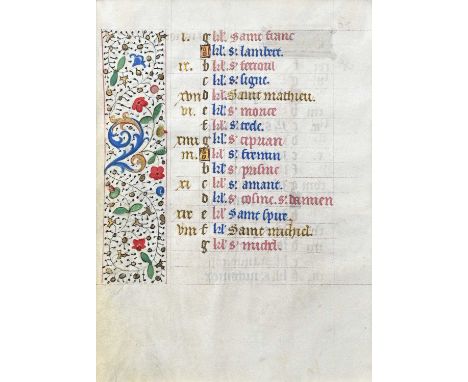 i. g kl' Saint franc
A kl' s' lambert.
ix. b kl' s' ferioul
c kl' s' signe.
xvii d kl' Saint mathieu.
vi. e kl' s' morice
f kl' s' tecle.
xiiii g kl' s' ciprian
iii. A kl' s' fremin
b kl' s' prisine
xi c kl' s' amant.
d kl' s' cosme. s' damien
xix e kl' Saint spire.
viii f kl' Saint michiel.
g kl' s' michel.